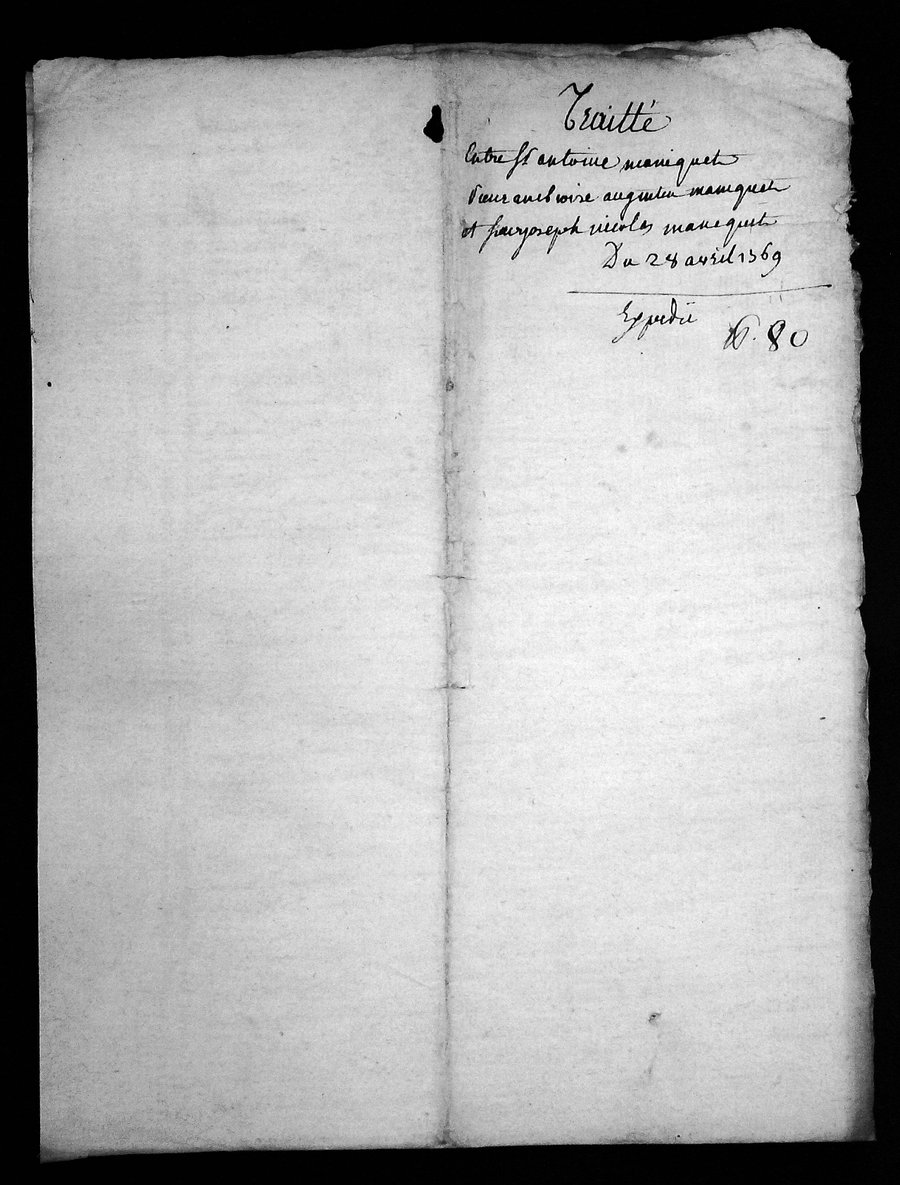 Traitté
Entre Sr antoine maniquet
Sieur ambroise augustin maniquet
et Sieur joseph nicolas maniquet
Du 28 avril 1769
Expedié
N. 80